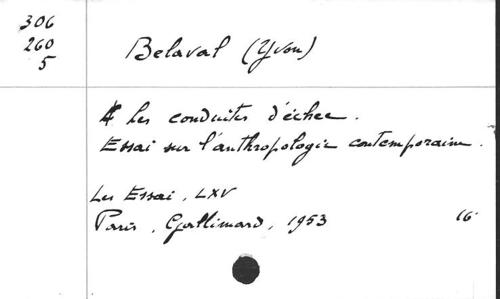 306
260
5
Belaval (Yvon)
Les conduites d'échec.
Essai sur l'anthropologie contemporaine.
Les Essai, LXV
Paris, Gallimard, 1953 16